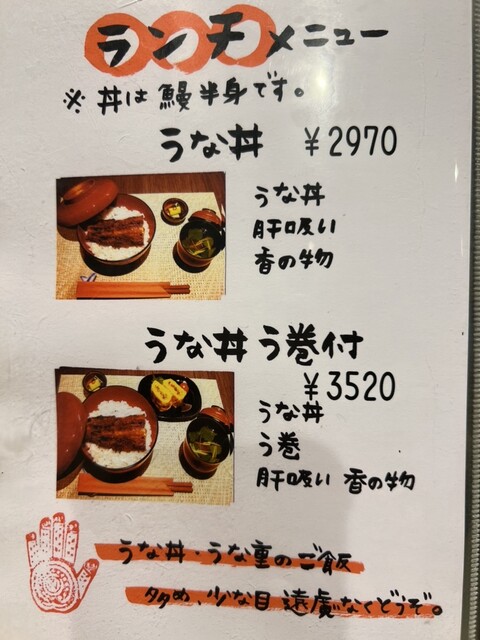 ランチメニュー
※丼は鰻半身です。
うな丼 ¥2970
うな丼
肝吸い
香の物
うな丼う巻付
¥3520
うな丼
う巻
肝吸い 香の物
うな丼・うな重のご飯
多め、少な目遠慮なくどうぞ。